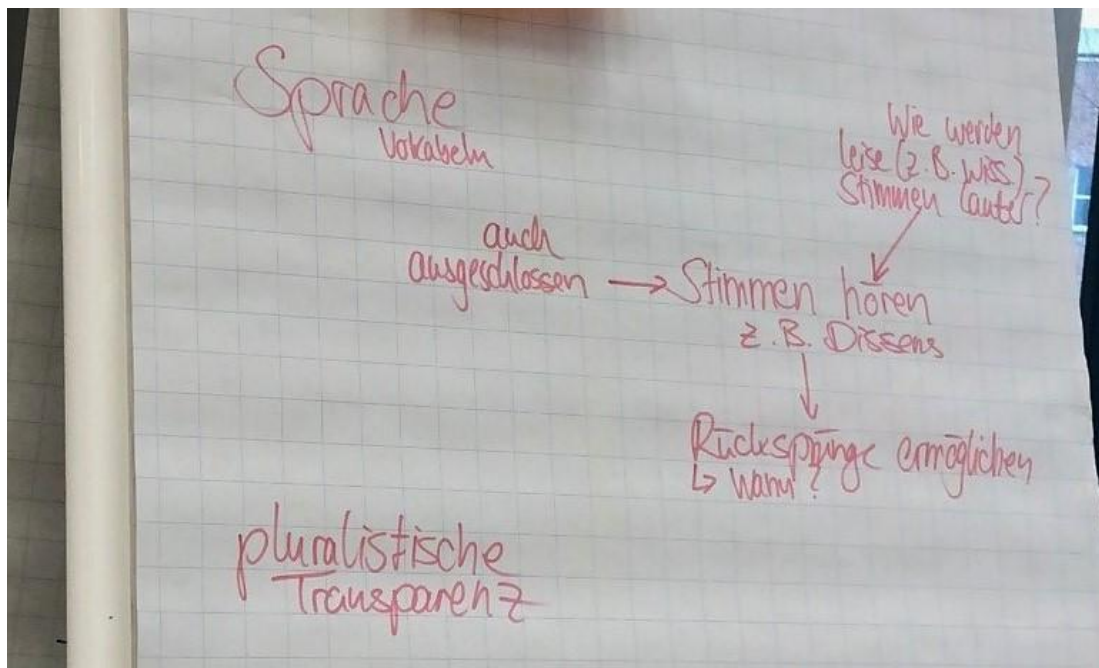 Sprache
Vokabeln
Wie werden
leise (z.B. Wiss)
Stimmen lauter?
auch
ausgeschlossen → Stimmen hören
z.B. Dissens
Rücksprünge ermöglichen
↳ Wann?
pluralistische
Transparenz